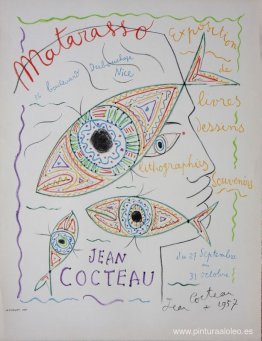 Matarasso
Exposition
de
livres
dessins
lithographies
Souvenirs
Boulevard Dubouchage
Nice
JEAN
COCTEAU
du 27 Septembre
au
31 octobre
Jean Cocteau
1957
www.pinturaaloleo.es